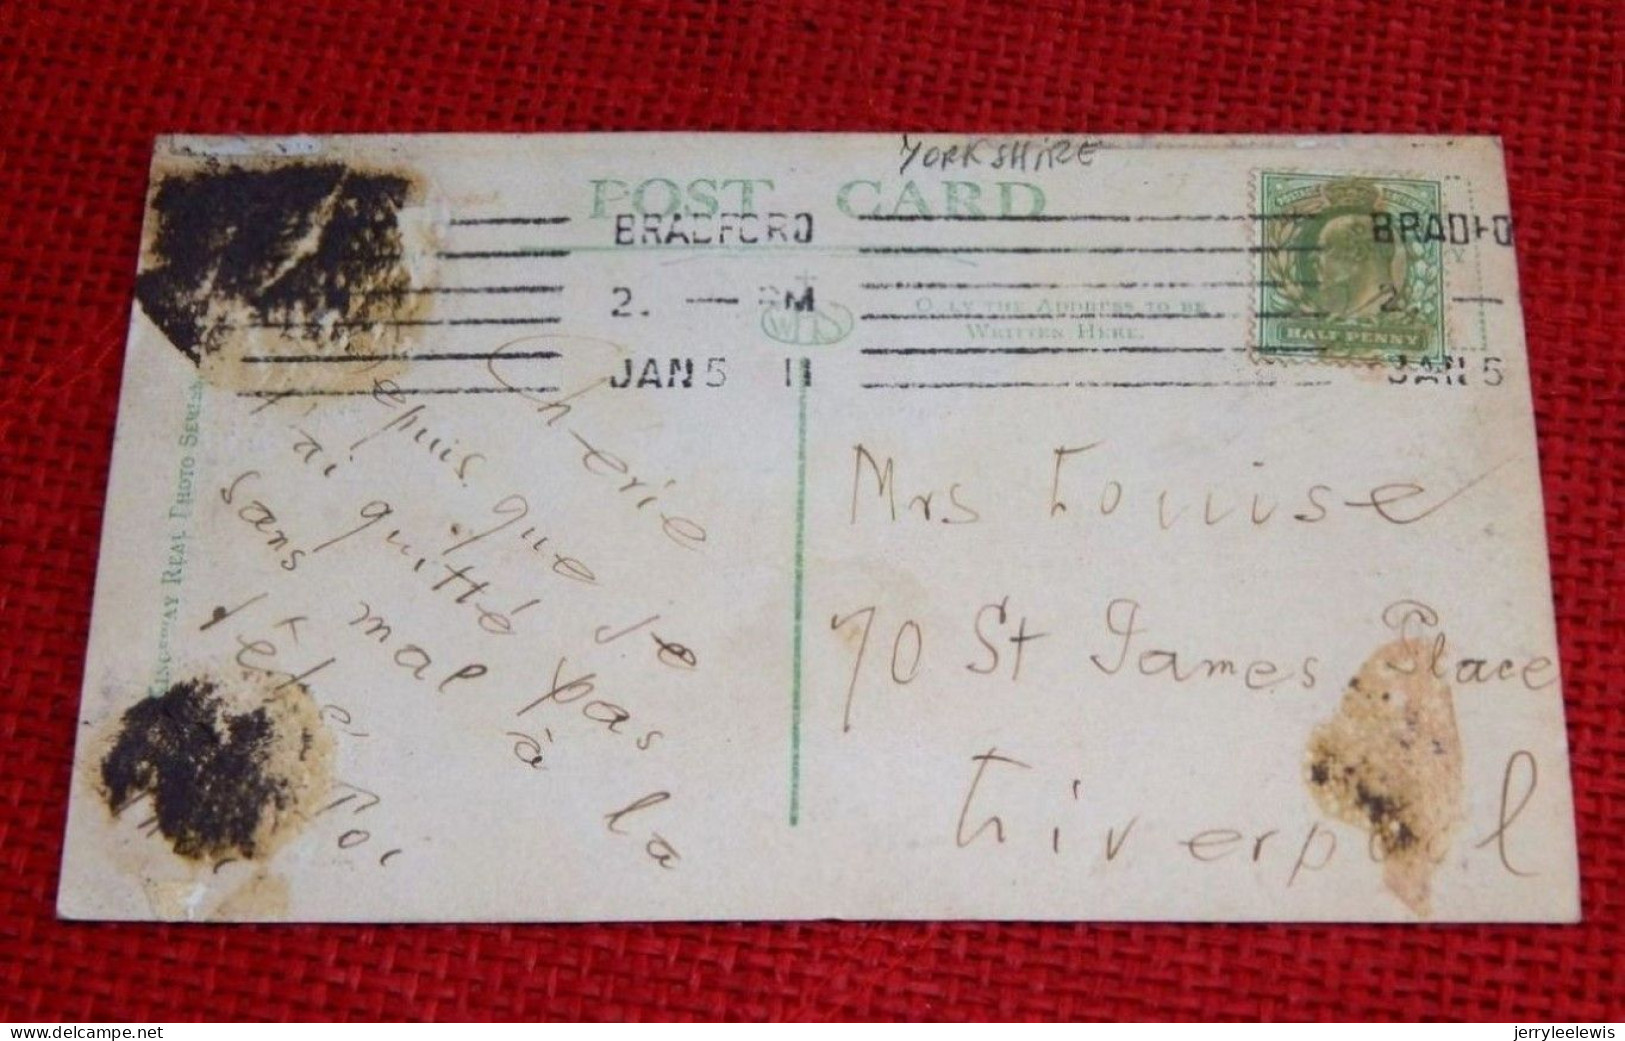 YORKSHIRE
POST CARD
BRADFORD
BRADFO
2. — PM
2. —
JAN 5 11
JAN 5
ONLY THE ADDRESS TO BE
WRITTEN HERE.
HALFPENNY
KINGSWAY REAL PHOTO SERIES
Cherie
Depuis que je
t'ai quitté pas
sans mal à la
tête Toi
Mrs Louise
70 St James Place
Liverpool
www.delcampe.net
jerryleelewis